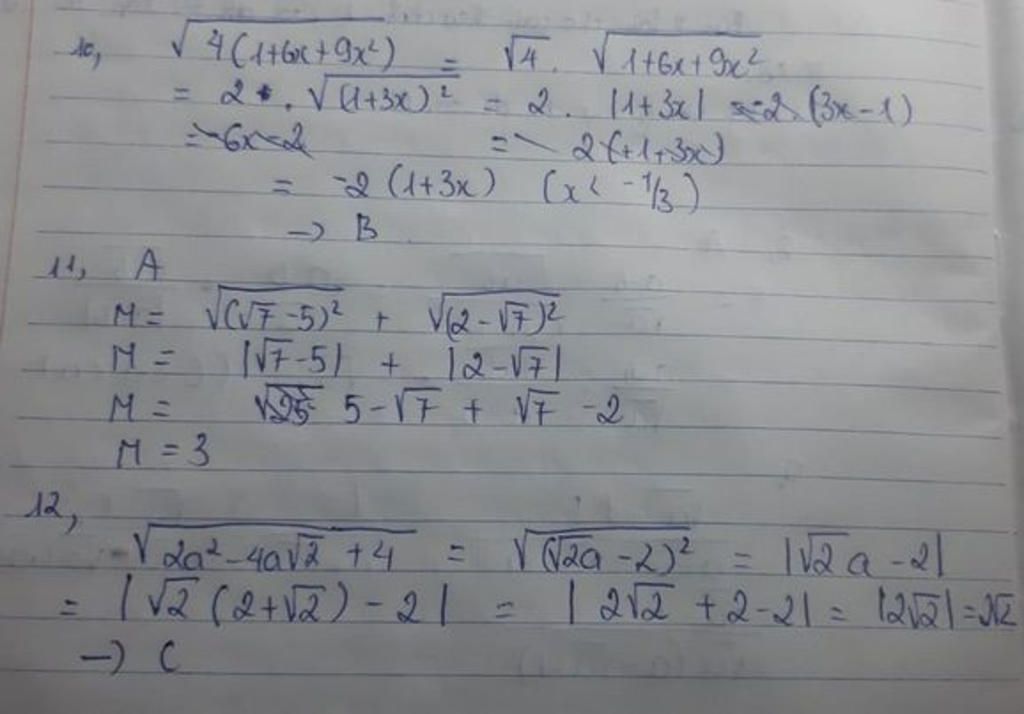 10, √4(1+6x+9x²) = √4 . √1+6x+9x²
= 2 . √(1+3x)² = 2 . |1+3x| = -2 (3x-1)
= -6x-2 = - 2(+1+3x)
= -2 (1+3x) (x < -1/3)
→ B
11, A
M = √(√7-5)² + √(2-√7)²
M = |√7-5| + |2-√7|
M = √25 5-√7 + √7 -2
M = 3
12,
√2a²-4a√2+4 = √(√2a-2)² = |√2a-2|
= |√2(2+√2)-2| = |2√2+2-2| = |2√2| = 2√2
→ C